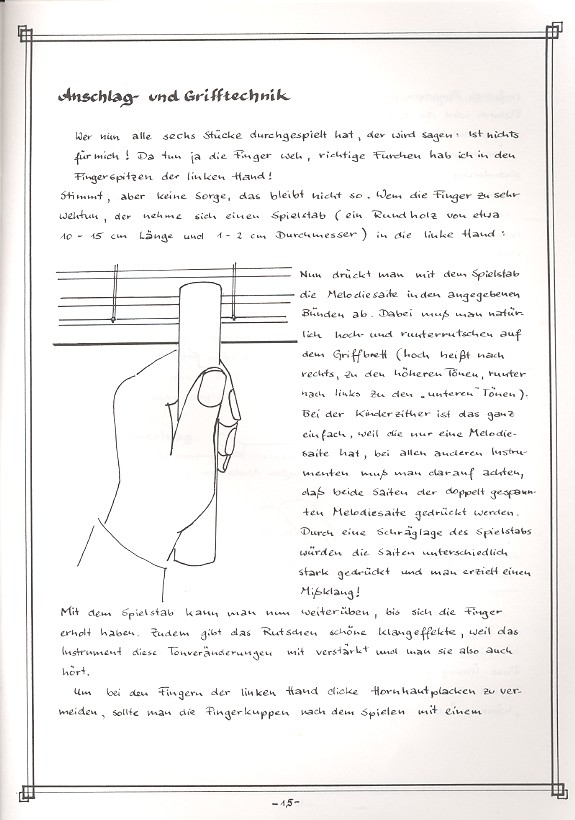 Anschlag- und Grifftechnik
Wer nun alle sechs Stücke durchgespielt hat, der wird sagen: Ist nichts
für mich! Da tun ja die Finger weh, richtige Furchen hab ich in den
Fingerspitzen der linken Hand!
Stimmt, aber keine Sorge, das bleibt nicht so. Wem die Finger zu sehr
wehtun, der nehme sich einen Spielstab (ein Rundholz von etwa
10 - 15 cm Länge und 1 - 2 cm Durchmesser) in die linke Hand:
Nun drückt man mit dem Spielstab
die Melodiesaite in den angegebenen
Bünden ab. Dabei muß man natür-
lich hoch- und runterrutschen auf
dem Griffbrett (hoch heißt nach
rechts, zu den höheren Tönen, runter
nach links zu den „unteren" Tönen).
Bei der Kinderzither ist das ganz
einfach, weil die nur eine Melodie-
saite hat, bei allen anderen Instru-
menten muß man darauf achten,
daß beide Saiten der doppelt gespann-
ten Melodiesaite gedrückt werden.
Durch eine Schräglage des Spielstabs
würden die Saiten unterschiedlich
stark gedrückt und man erzielt einen
Mißklang!
Mit dem Spielstab kann man nun weiterüben, bis sich die Finger
erholt haben. Zudem gibt das Rutschen schöne Klangeffekte, weil das
Instrument diese Tonveränderungen mit verstärkt und man sie also auch
hört.
Um bei den Fingern der linken Hand dicke Hornhautplacken zu ver-
meiden, sollte man die Fingerkuppen nach dem Spielen mit einem
- 15 -